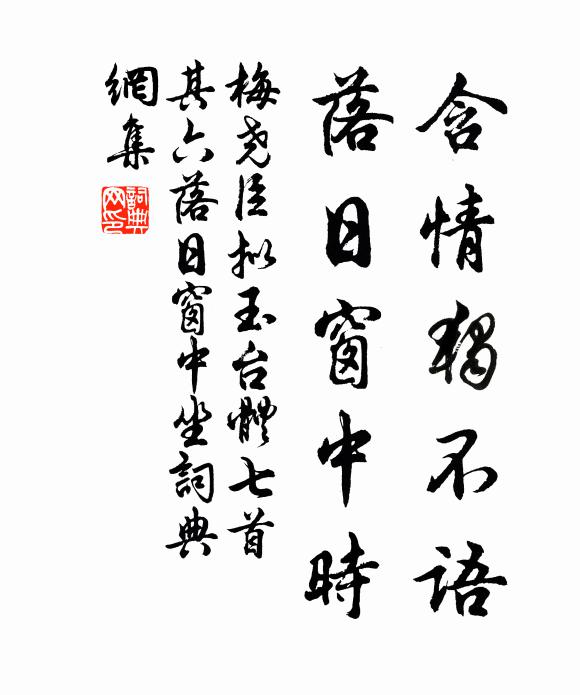 含情獨不語
落日窗中時
梅堯臣拟玉台體七首
其六落日窗中坐詞典
網集
詞典网印